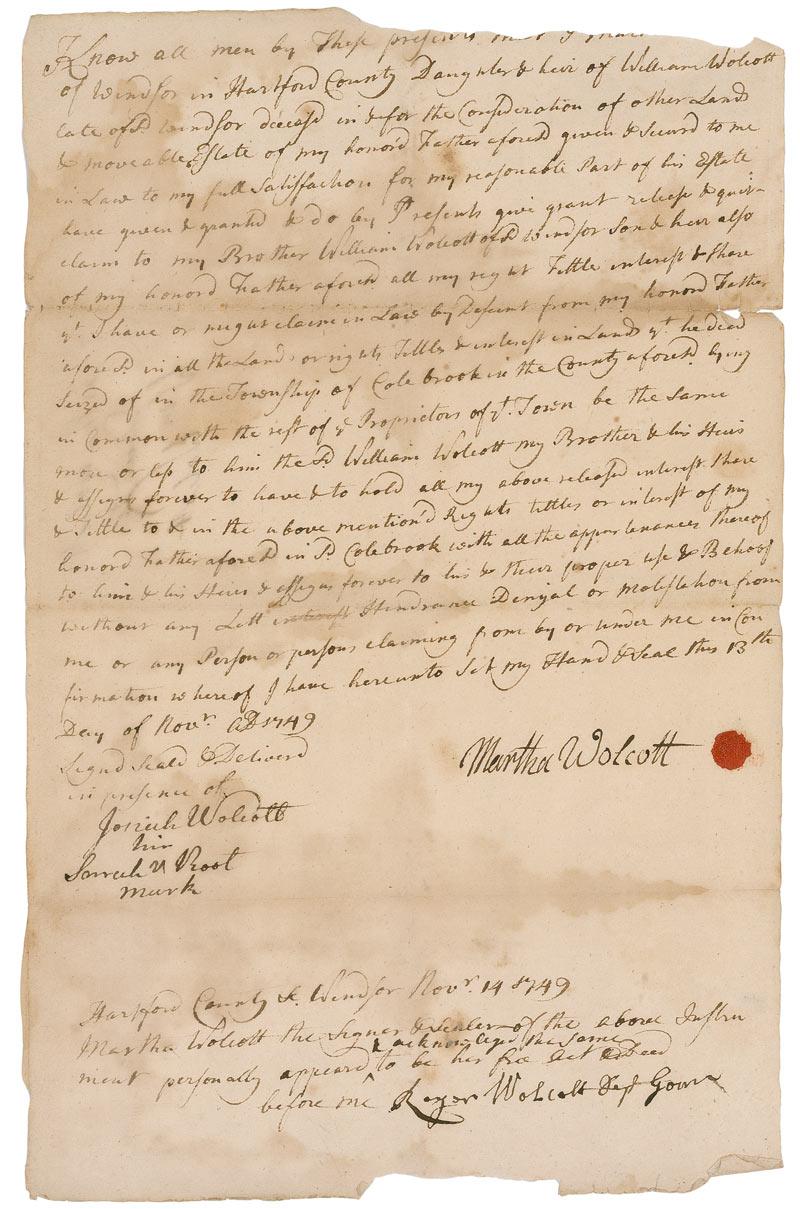 Know all men by These presents that I
of Windsor in Hartford County Daughter & heir of William Wolcott
late of sd. Windsor deceasd in & for the Consideration of other Lands
& moveable Estate of my honord Father aforesd given & Secured to me
in Law to my full Satisfaction for my reasonable Part of his Estate
have given & granted & do by Presents give grant release & quit-
claim to my Brother William Wolcott of sd Windsor Son & heir also
of my honord Father aforesd all my right Tittle interest & Share
yt. I have or might claim in Law by Descent from my honord Father
aforesd. in all the Lands or rights Tittles & interest in Lands yt. he died
Seized of in the Township of Colebrook in the County aforesd. lying
in Common with the rest of ye Proprietors of yt. Town be the Same
more or less to him the sd William Wolcott my Brother & his Heirs
& assigns forever to have & to hold all my above released interest Share
& Tittle to & in the above mention'd Rights tittles or interest of my
honord Father aforesd in sd. Colebrook with all the appurtenances thereof
to him & his Heirs & assigns forever to his & their proper use & Behoof
without any Lett interest Hindrance Denyal or molestation from
me or any Person or persons claiming from by or under me in Con
firmation whereof I have hereunto Set my Hand & Seal this 13th
Day of Novr. AD 1749
Signd Seald & Deliverd
in presence of
Martha Wolcott
Josiah Wolcott
his
Root
mark
Hartford County Ss. Windsor Novr. 14 1749
Martha Wolcott the Signer & Sealer of the above Instru
& acknowledged the same
ment personally appeared ^ to be her free Act & Deed
before me Roger Wolcott Dep Govr